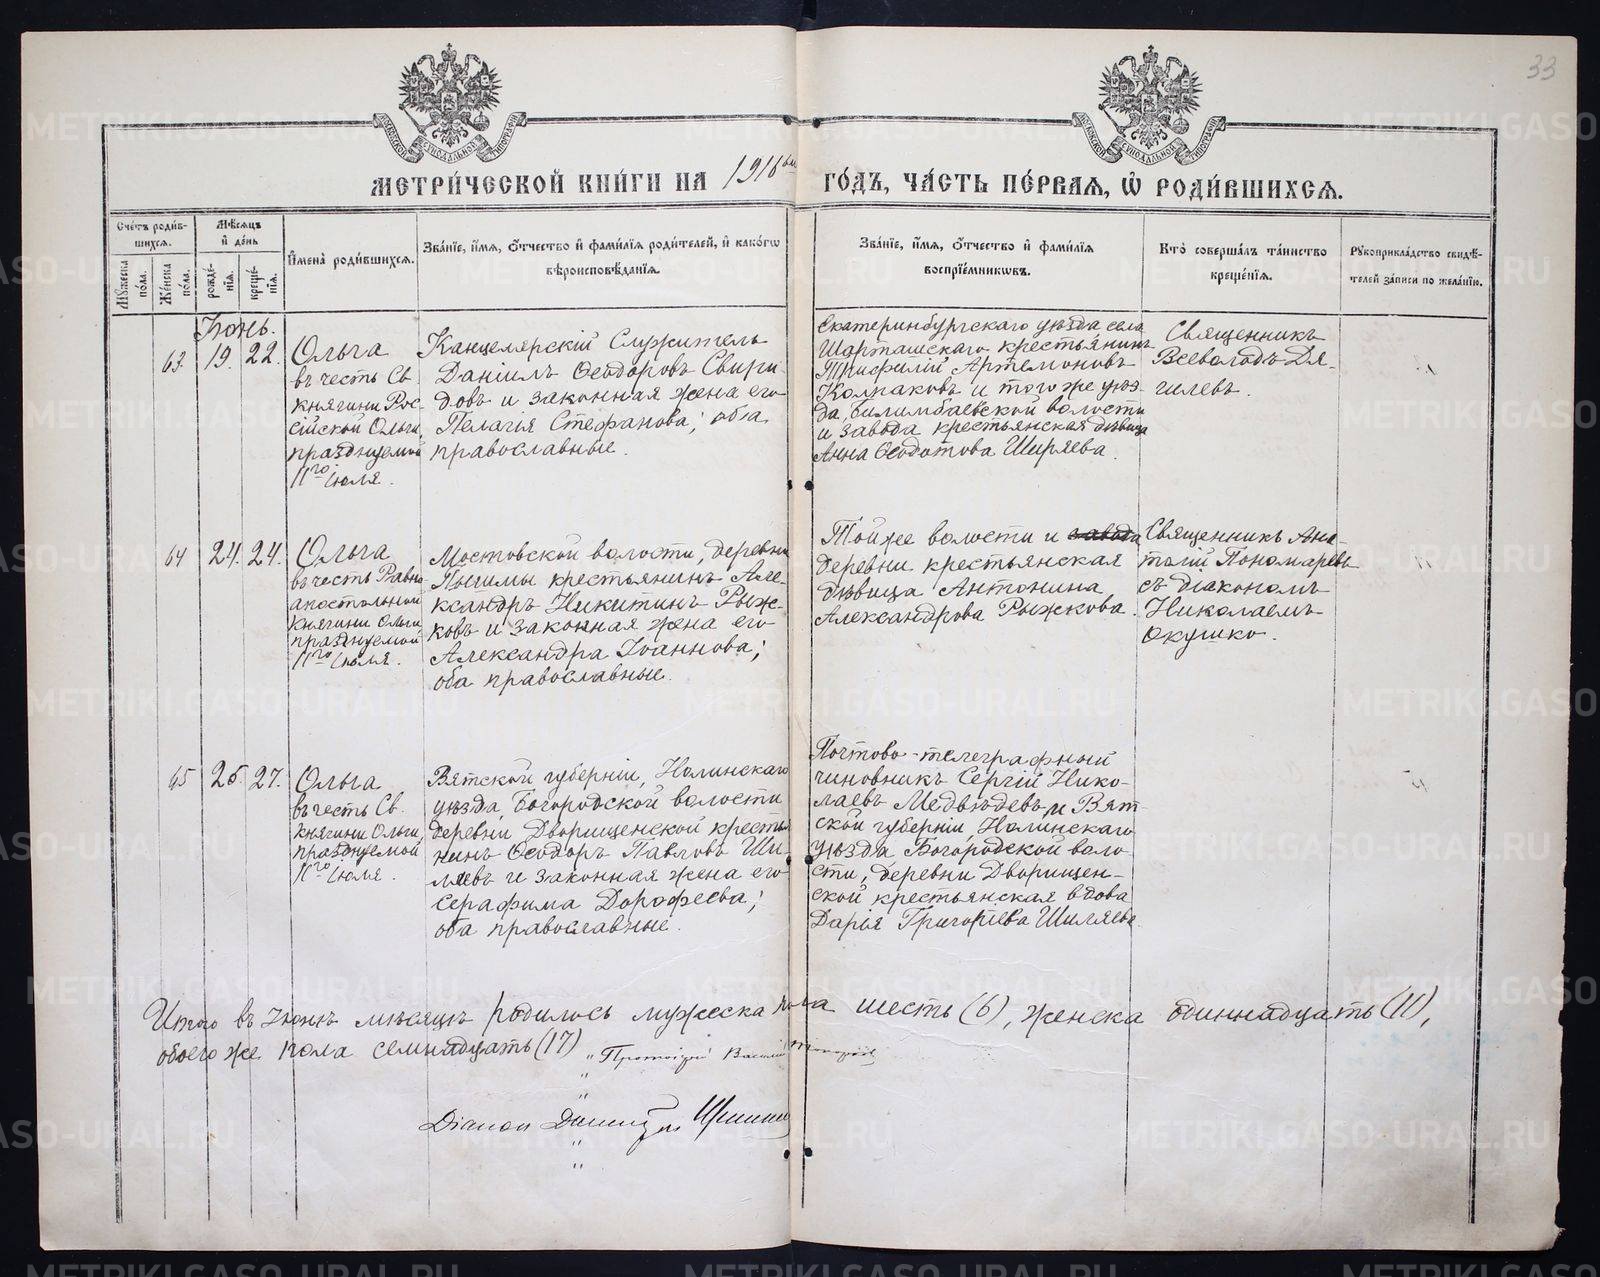 33
МОСКОВСКОЙ СѴНОДАЛЬНОЙ ТИПОГРАФІИ
МОСКОВСКОЙ СѴНОДАЛЬНОЙ ТИПОГРАФІИ
МЕТРИ́ЧЕСКОЙ КНИ́ГИ НА 1916 ГО́ДЪ, ЧА́СТЬ ПЕ́РВАѦ, Ѡ҆ РОДИ́ВШИХСѦ.
Сче́тъ роди́в-
шихсѧ.
Мѣ́сѧцъ
и҆ де́нь
Мꙋ́жеска по́ла.
Же́нска по́ла.
рожде́-
нїѧ.
креще́-
нїѧ.
И҆мена̀ роди́вшихсѧ.
Зва́нїе, и҆́мѧ, ѻ҆́тчество и҆ фами́лїѧ роди́телей, и҆ како́гѡ
вѣроисповѣ́данїѧ.
Зва́нїе, и҆́мѧ, ѻ҆́тчество и҆ фами́лїѧ
воспрїе́мникѡвъ.
Кто̀ соверша́лъ та́инство
креще́нїѧ.
Рꙋкоприкла́дство свидѣ́-
телей за́писи по жела́нїю.
Іюнь.
63. 19. 22.
Ольга
въ честь Св.
княгини Рос-
сійской Ольги,
празднуемой
11го Іюля.
Канцелярскій Служитель
Даніилъ Ѳеодоровъ Свири-
довъ и законная жена его
Пелагія Стефанова; оба
православные.
Екатеринбургскаго уѣзда, села
Шарташскаго крестьянинъ
Трифилій Артемоновъ
Колпаковъ и того же уѣз-
да, Билимбаевской волости
и завода крестьянская дѣвица
Анна Ѳеодотова Ширяева.
Священникъ
Всеволодъ Дя-
гилевъ.
64 24. 24.
Ольга
въ честь Равно
апостольной
княгини Ольги
празднуемой
11го Іюля.
Мостовской волости, деревни
Пышмы крестьянинъ Але-
ксандръ Никитинъ Рыж-
ковъ и законная жена его
Александра Іоаннова;
оба православные.
Той же волости и завода
деревни крестьянская
дѣвица Антонина
Александрова Рыжкова.
Священникъ Ана-
толій Пономаревъ
съ діакономъ
Николаемъ
Окулко.
65 26. 27.
Ольга
въ честь Св.
княгини Ольги,
празднуемой
11го Іюля.
Вятской губерніи, Нолинскаго
уѣзда, Богородской волости
деревни Дворищенской крестья
нинъ Ѳеодоръ Павловъ Ши-
ляевъ и законная жена его
Серафима Дорофеева;
оба православные.
Почтово-телеграфный
чиновникъ Сергій Нико-
лаевъ Медвѣдевъ и Вят-
ской губерніи Нолинскаго
уѣзда Богородской воло-
сти, деревни Дворищен-
ской крестьянская вдова
Дарія Григоріева Шиляева.
Итого въ Іюнѣ мѣсяцѣ родилось мужеска пола шесть (6), женска одиннадцать (11),
обоего же пола семнадцать (17)
Протоіерей Василій
Діакон
METRIKI.GASO-URAL.RU